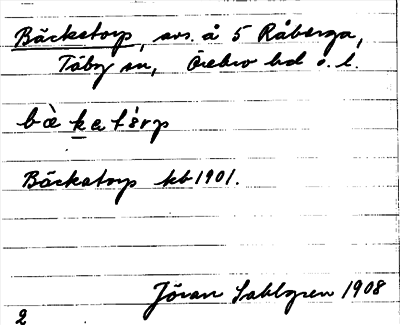 Bäckatorp, avs. å 5 Råberga,
Täby sn, Örebro hd o. l.
bæ̀katårp
Bäckatorp kb 1901.
Jöran Sahlgren 1908
2